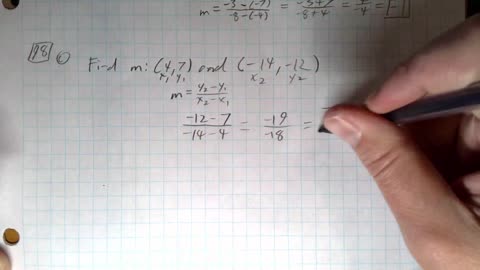 m = -3-(-7) / -8-(-4) = -3+7 / -8+4 = / -4 = -1
18 Find m: (4,7) and (-14,-12)
x₁ y₁ x₂ y₂
m = y₂-y₁ / x₂-x₁
-12-7 / -14-4 = -19 / -18 =